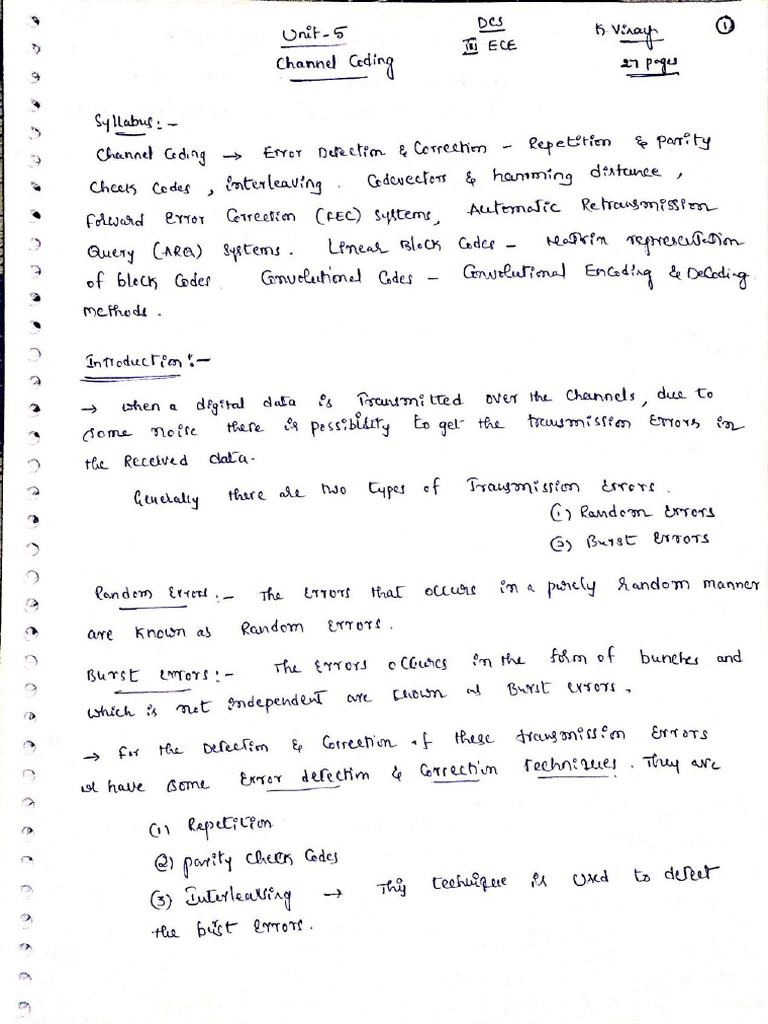 Unit-5
Channel Coding
DCS
III ECE
K Vinay
27 pages
1
Syllabus:-
Channel Coding → Error Detection & Correction - Repetition & parity
Check Codes, interleaving. Codevectors & hamming distance,
Forward Error Correction (FEC) Systems, Automatic Retransmission
Query (ARQ) Systems. Linear Block Codes - Matrix representation
of block Codes. Convolutional Codes - Convolutional Encoding & Decoding
methods.
Introduction:-
→ when a digital data is Transmitted over the channels, due to
some noise there is possibility to get the transmission Errors in
the Received data.
Generally there are two types of Transmission Errors.
(1) Random Errors
(2) Burst Errors
Random Errors:- The Errors that occurs in a purely random manner
are known as Random Errors.
Burst errors:- The Errors occures in the form of bunches and
which is not independent are known as Burst errors.
→ for the Detection & Correction of these transmission Errors
we have some Error detection & Correction techniques. They are
(1) Repetition
(2) parity check Codes
(3) Interleaving → This technique is used to detect
the burst errors.